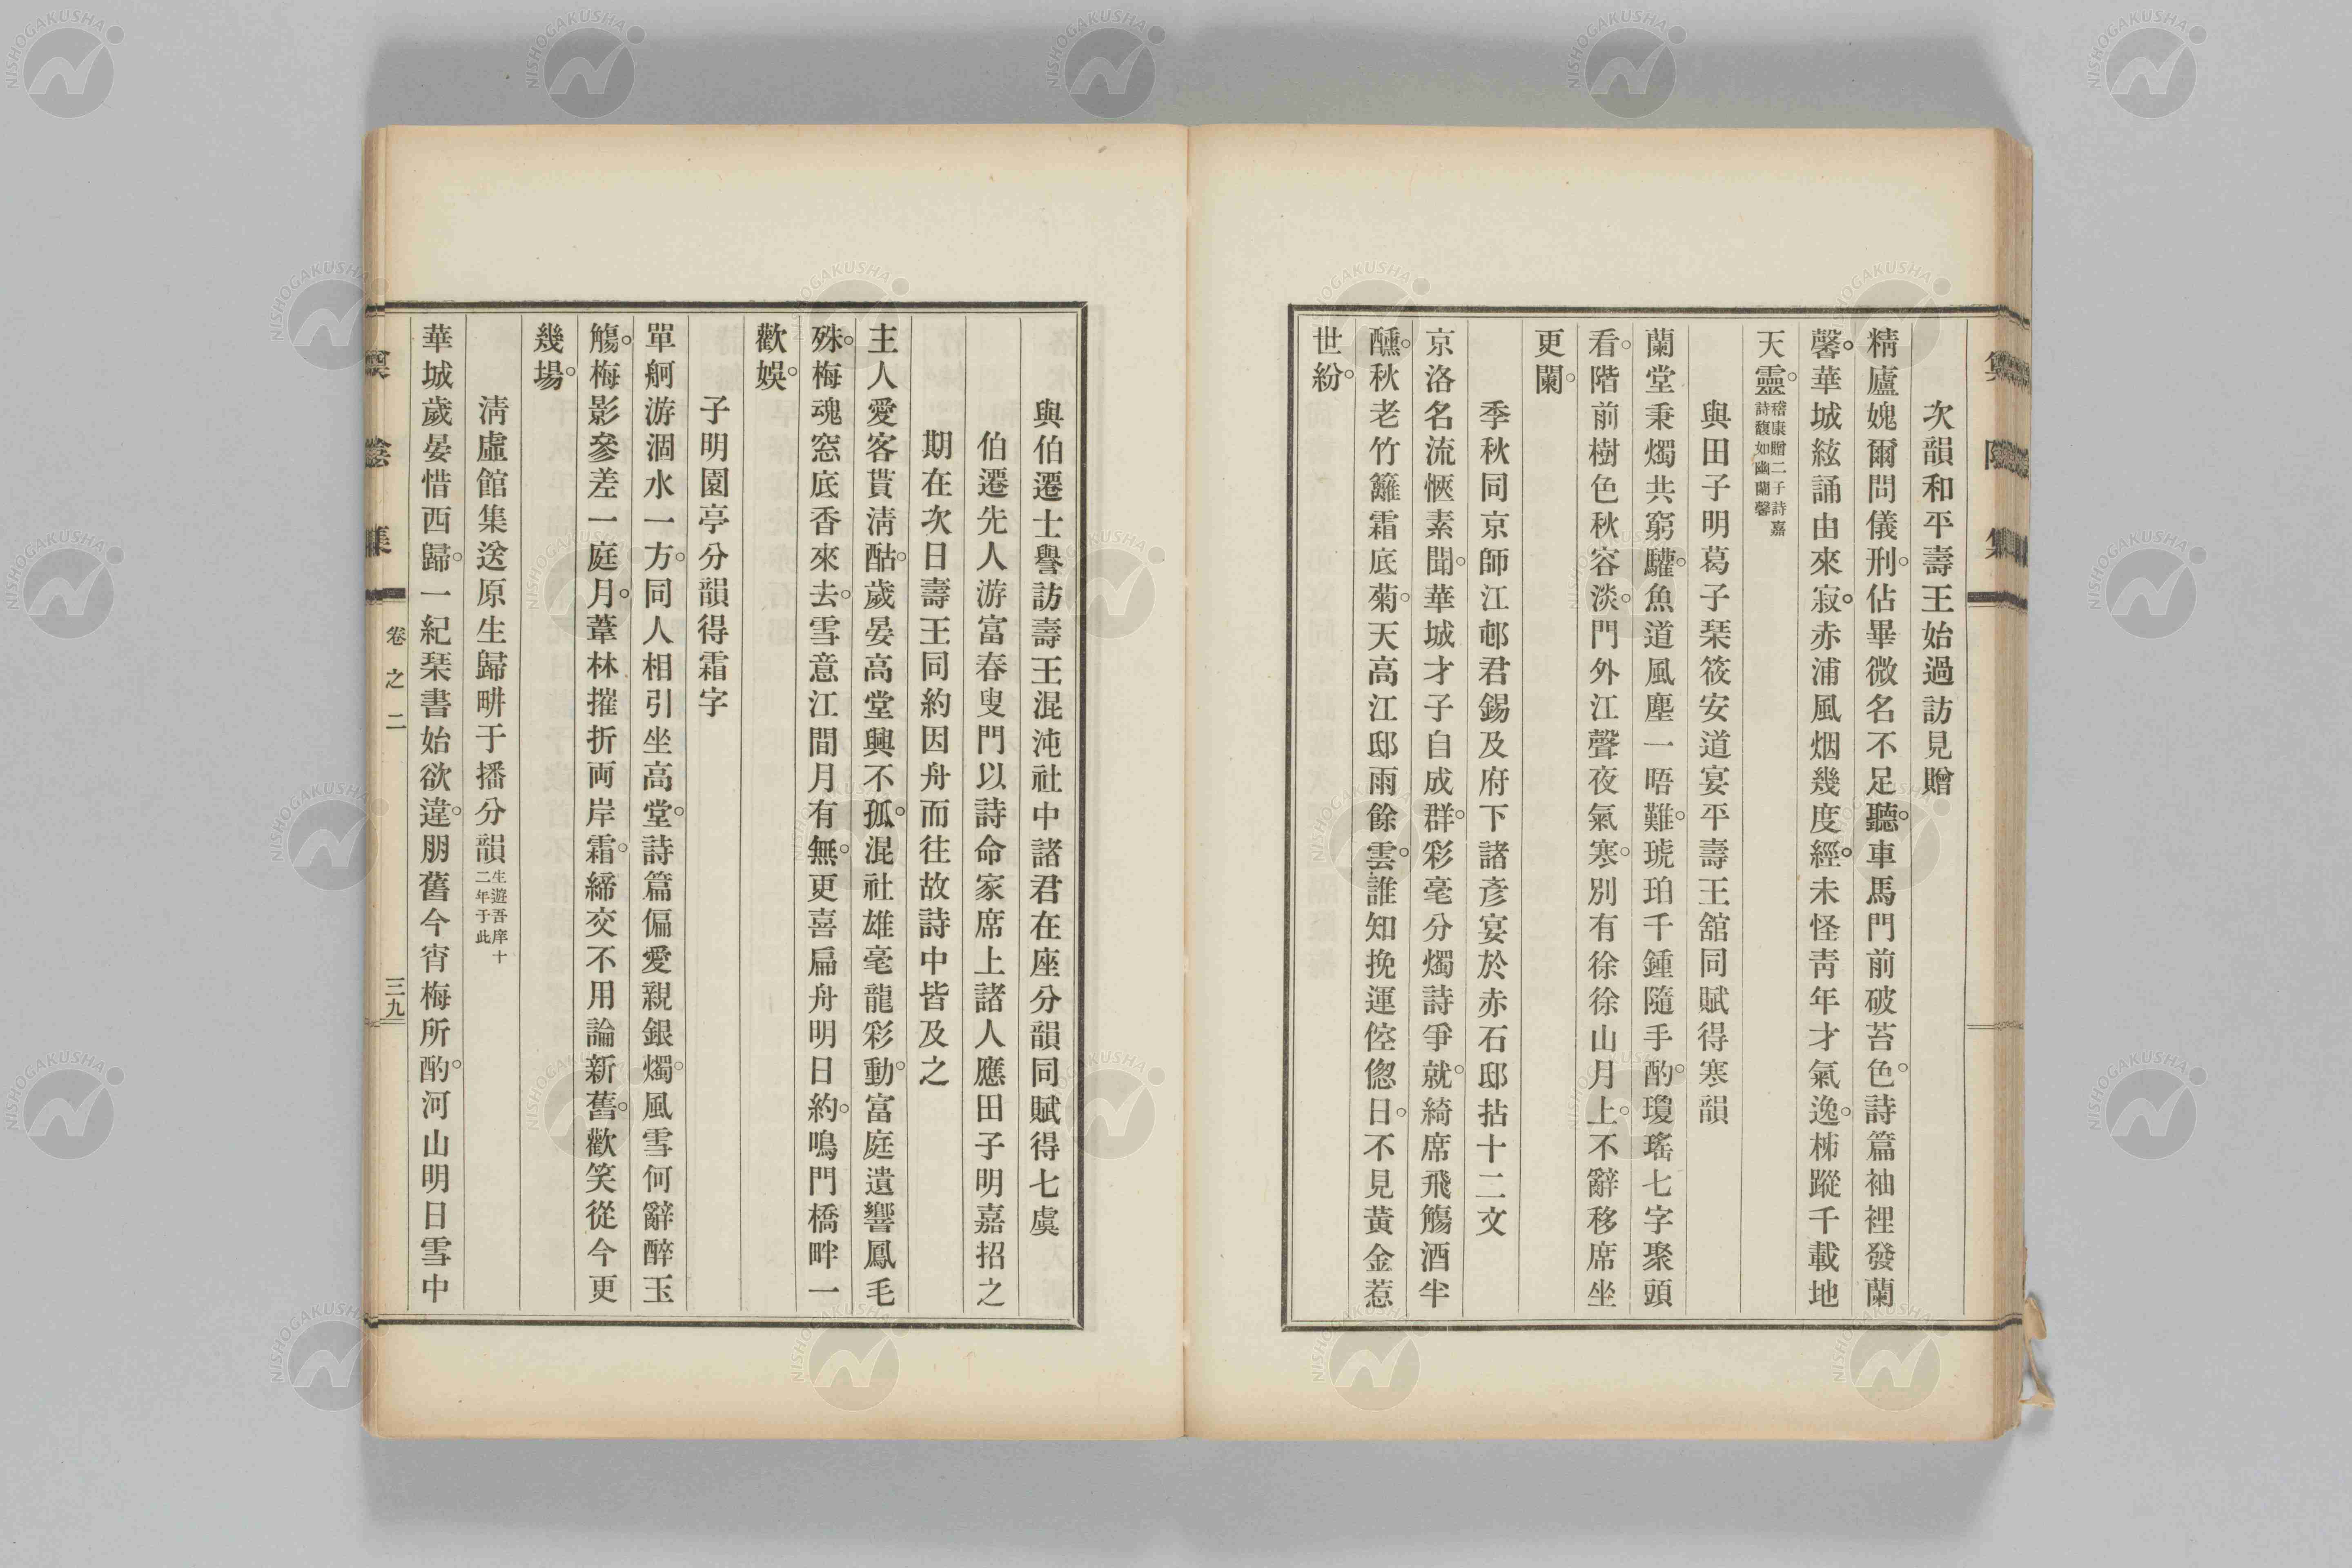 次韻和平壽王始過訪見贈
精廬媿爾問儀刑。佔畢微名不足聽。車馬門前破苔色。詩篇袖裡發蘭
馨。華城絃誦由來寂。赤浦風烟幾度經。未怪靑年才氣逸。柹蹤千載地
天靈。
嵇康贈二子詩嘉
詩馥如幽蘭馨
與田子明葛子琹筱安道宴平壽王舘同賦得寒韻
蘭堂秉燭共窮驩。魚道風塵一晤難。琥珀千鍾隨手酌。瓊瑤七字聚頭
看。階前樹色秋容淡。門外江聲夜氣寒。別有徐徐山月上。不辭移席坐
更闌。
季秋同京師江邨君錫及府下諸彥宴於赤石邸拈十二文
京洛名流愜素聞。華城才子自成群。彩毫分燭詩爭就。綺席飛觴酒半
醺。秋老竹籬霜底菊。天高江邸雨餘雲。誰知挽運倥偬日。不見黃金惹
世紛。
與伯遷士譽訪壽王混沌社中諸君在座分韻同賦得七虞
伯遷先人游富春叟門以詩命家席上諸人應田子明嘉招之
期在次日壽王同約因舟而往故詩中皆及之
主人愛客貰淸酤。歲晏高堂興不孤。混社雄毫龍彩動。富庭遺響鳳毛
殊。梅魂窓底香來去。雪意江間月有無。更喜扁舟明日約。鳴門橋畔一
歡娛。
子明園亭分韻得霜字
單舸游涸水一方。同人相引坐高堂。詩篇偏愛親銀燭。風雪何辭醉玉
觴。梅影參差一庭月。葦林摧折両岸霜。締交不用論新舊。歡笑從今更
幾場。
淸虛館集送原生歸畊于播分韻
生遊吾庠十
二年于此
華城歲晏惜西歸。一紀琹書始欲違。朋舊今宵梅所酌。河山明日雪中
卷之二
三九
NISHOGAKUSHA